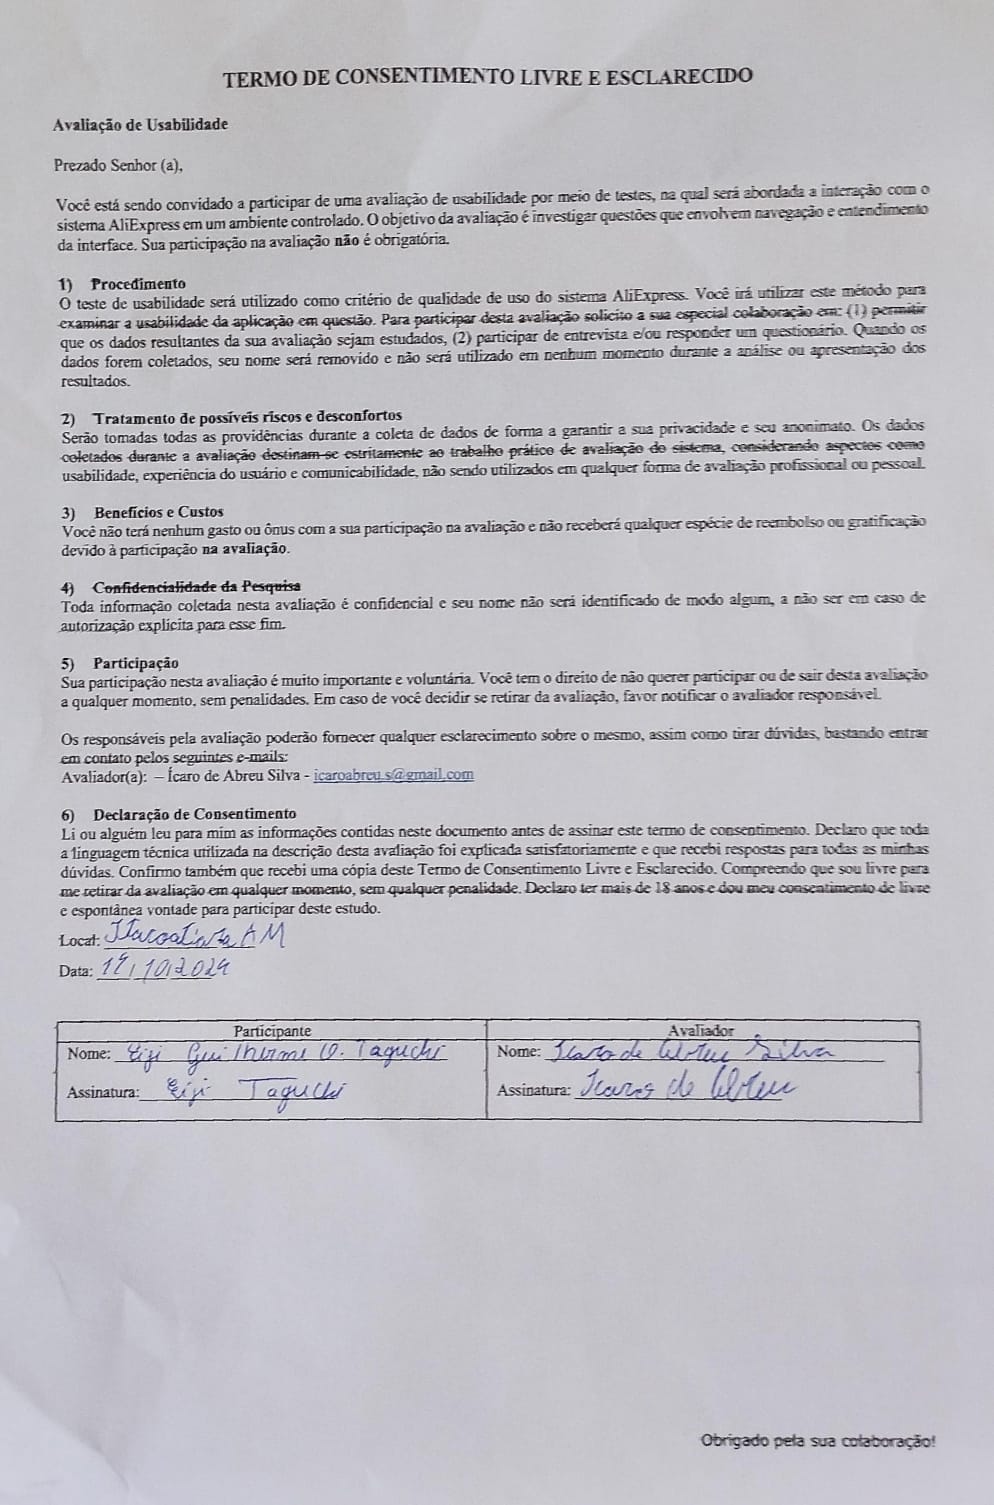 TERMO DE CONSENTIMENTO LIVRE E ESCLARECIDO
Avaliação de Usabilidade
Prezado Senhor (a),
Você está sendo convidado a participar de uma avaliação de usabilidade por meio de testes, na qual será abordada a interação com o
sistema AliExpress em um ambiente controlado. O objetivo da avaliação é investigar questões que envolvem navegação e entendimento
da interface. Sua participação na avaliação não é obrigatória.
1) Procedimento
O teste de usabilidade será utilizado como critério de qualidade de uso do sistema AliExpress. Você irá utilizar este método para
examinar a usabilidade da aplicação em questão. Para participar desta avaliação solicito a sua especial colaboração em: (1) permitir
que os dados resultantes da sua avaliação sejam estudados, (2) participar de entrevista e/ou responder um questionário. Quando os
dados forem coletados, seu nome será removido e não será utilizado em nenhum momento durante a análise ou apresentação dos
resultados.
2) Tratamento de possíveis riscos e desconfortos
Serão tomadas todas as providências durante a coleta de dados de forma a garantir a sua privacidade e seu anonimato. Os dados
coletados durante a avaliação destinam-se estritamente ao trabalho prático de avaliação do sistema, considerando aspectos como
usabilidade, experiência do usuário e comunicabilidade, não sendo utilizados em qualquer forma de avaliação profissional ou pessoal.
3) Benefícios e Custos
Você não terá nenhum gasto ou ônus com a sua participação na avaliação e não receberá qualquer espécie de reembolso ou gratificação
devido à participação na avaliação.
4) Confidencialidade da Pesquisa
Toda informação coletada nesta avaliação é confidencial e seu nome não será identificado de modo algum, a não ser em caso de
autorização explícita para esse fim.
5) Participação
Sua participação nesta avaliação é muito importante e voluntária. Você tem o direito de não querer participar ou de sair desta avaliação
a qualquer momento, sem penalidades. Em caso de você decidir se retirar da avaliação, favor notificar o avaliador responsável.
Os responsáveis pela avaliação poderão fornecer qualquer esclarecimento sobre o mesmo, assim como tirar dúvidas, bastando entrar
em contato pelos seguintes e-mails:
Avaliador(a): – Ícaro de Abreu Silva - icaroabreu.s@gmail.com
6) Declaração de Consentimento
Li ou alguém leu para mim as informações contidas neste documento antes de assinar este termo de consentimento. Declaro que toda
a linguagem técnica utilizada na descrição desta avaliação foi explicada satisfatoriamente e que recebi respostas para todas as minhas
dúvidas. Confirmo também que recebi uma cópia deste Termo de Consentimento Livre e Esclarecido. Compreendo que sou livre para
me retirar da avaliação em qualquer momento, sem qualquer penalidade. Declaro ter mais de 18 anos e dou meu consentimento de livre
e espontânea vontade para participar deste estudo.
Local: Itacoatiara AM
Data: /10/2024
Participante Avaliador
Nome: Eiji Guilherme O. Taguchi Nome: Icaro de Abreu Silva
Assinatura: Eiji Taguchi Assinatura: Icaro de Abreu
Obrigado pela sua colaboração!